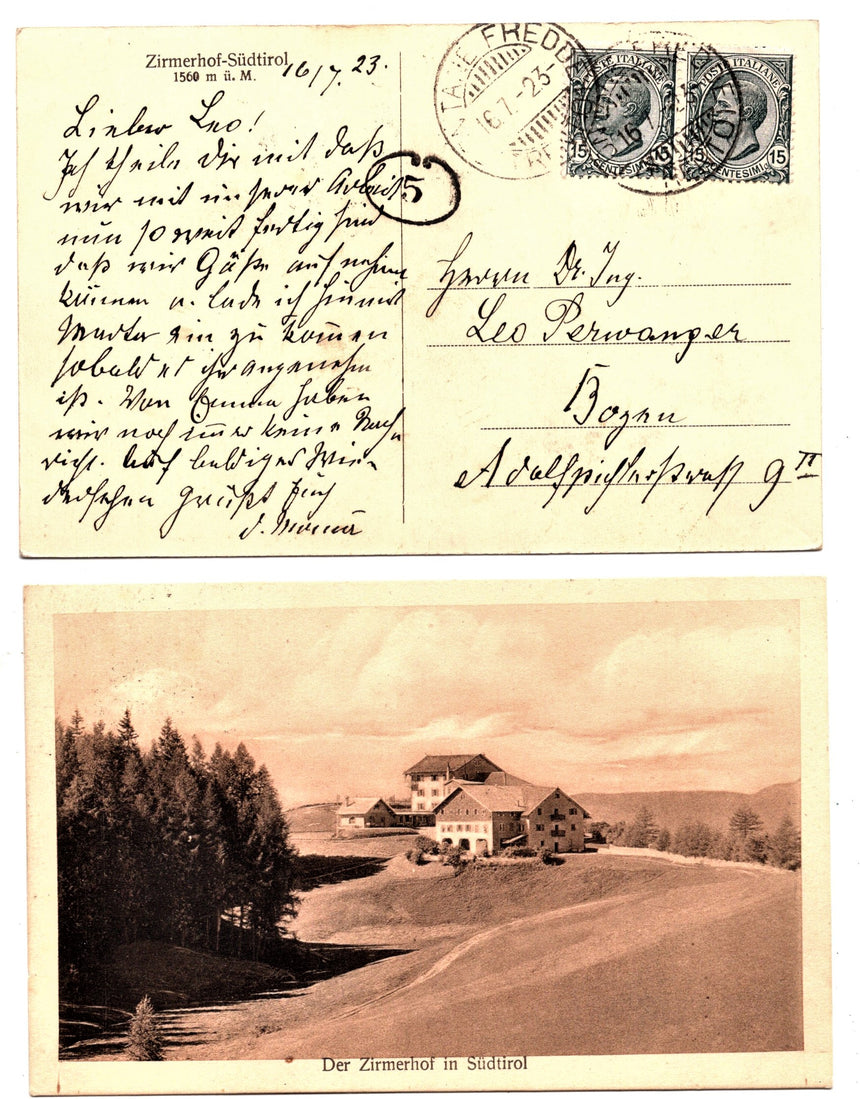 Zirmerhof-Südtirol
1560 m ü. M.
16/7. 23.
Lieber Leo!
Ich theile Dir mit daß
wir mit unserer Arbeit
nun so weit fertig sind
daß wir Gäste aufnehmen
können u. lade ich hiemit
Martha ein zu kommen
sobald es ihr angenehm
ist. Von Emma haben
wir noch immer keine Nach
richt. Auf baldiges Wie-
dersehen grüßt Euch
d. Mama
FREDDE
16.7-23-
5
POSTE ITALIANE
15 CENTESIMI 15
POSTE ITALIANE
15 CENTESIMI 15
Herrn Dr. Ing.
Leo Perwanger
Bozen
Adolfpichlerstrasse 9 II
Der Zirmerhof in Südtirol